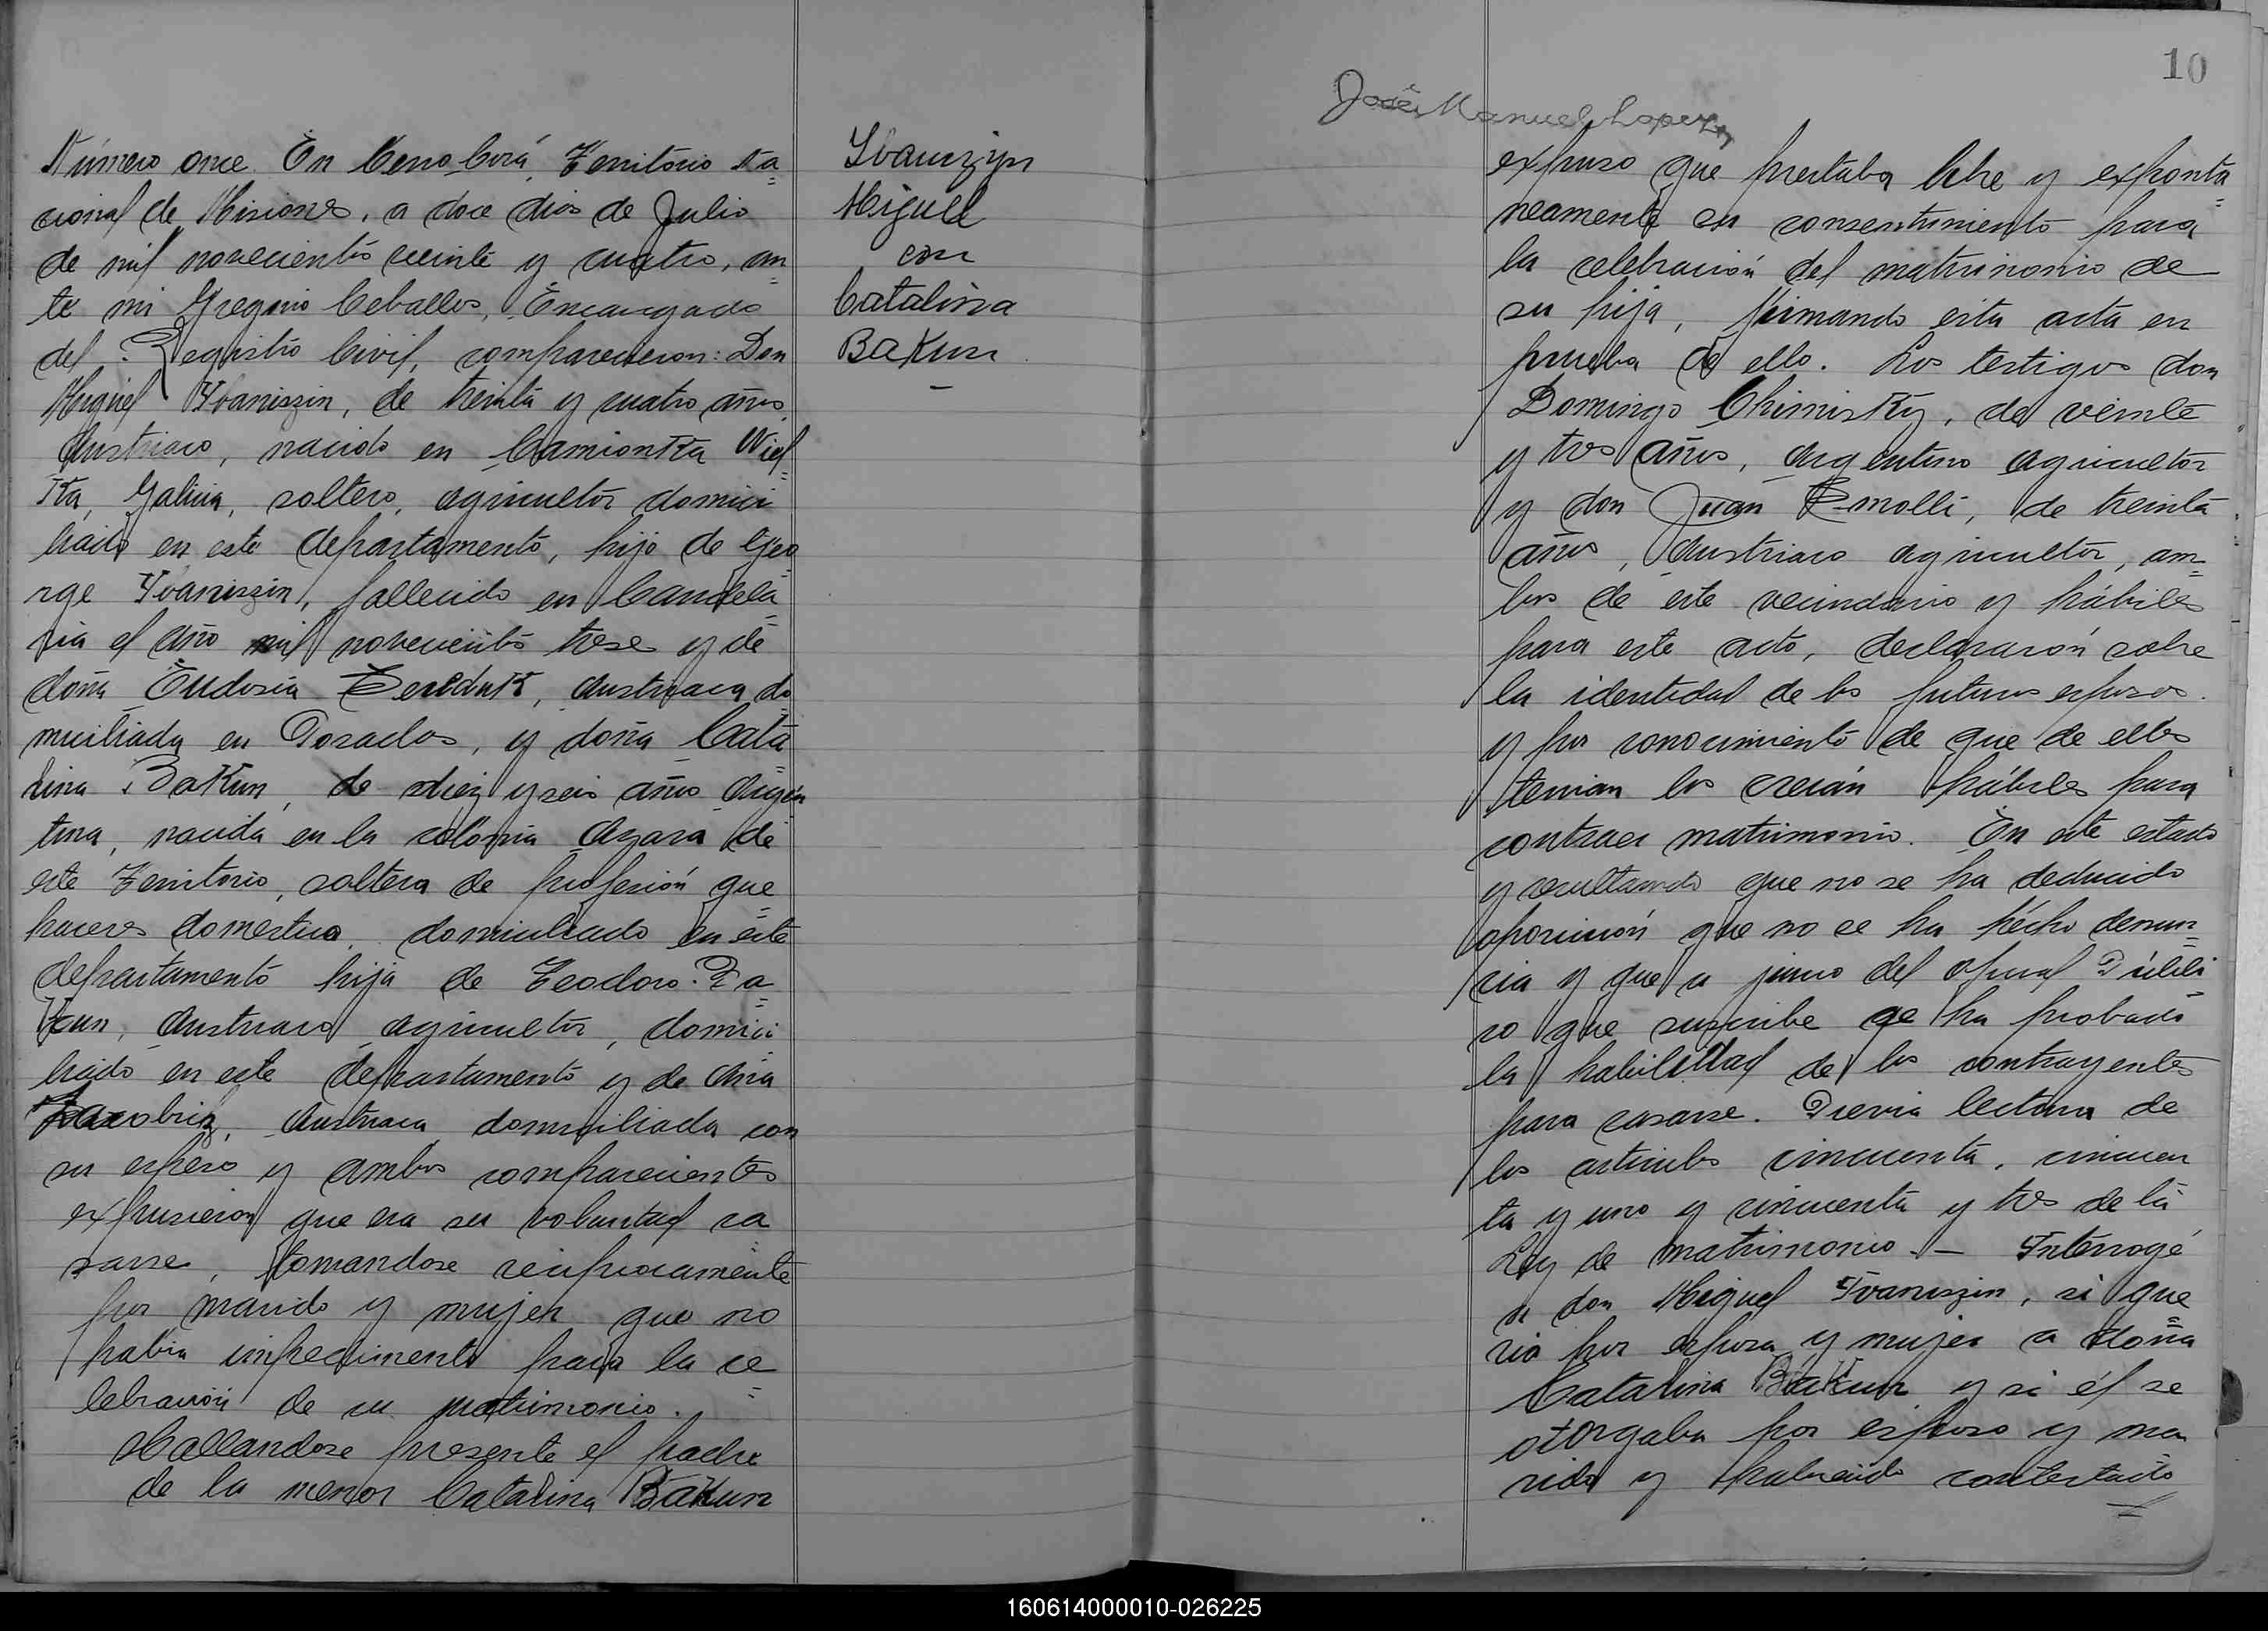 Número once. En Cerro Corá, Territorio Na=
cional de Misiones, a doce dias de Julio
de mil novecientos veinte y cuatro, an=
te mi Gregorio Ceballos, Encargado
del Registro Civil, comparecieron: Don
Miguel Ivaniszin, de treinta y cuatro años,
Austriaco, nacido en Camionka Wiel=
ka, Galicia, soltero, agricultor domici
liado en este departamento, hijo de Geo=
rge Ivaniszin, fallecido en Candela=
ria el año mil novecientos trese y de
doña Eudosia, Austriaca do=
miciliada en Posadas, y doña Cata=
lina Bakun, de diez y seis años Argen=
tina, nacida en la colonia Azara de
este Territorio, soltera de profesión que=
haceres domestico, domiciliado en este
departamento hija de Teodoro Ba=
kun, Austriaco agricultor, domici
liado en este departamento y de Ana
Austriaca domiciliada con
su esposo y ambos comparecientes
expusieron que era su voluntad ca=
sarse, tomandose reciprocamente
por marido y mujer que no
habia impedimento para la ce=
lebración de su matrimonio.
Hallandose presente el padre
de la menor Catalina Bakun
Miguel
con
Catalina
Bakun
10
José Manuel Lopez
expuso que prestaba libre y exponta=
neamente su consentimiento para
la celebración del matrimonio de
su hija, firmando esta acta en
prueba de ello. Los testigos don
Domingo Chimisky, de veinte
y tres años, Argentino agricultor
y don Juan Smolli, de treinta
años, Austriaco agricultor, am=
bos de este vecindario y hábiles
para este acto, declararón sobre
la identidad de los futuros esposos.
y por conocimiento de que de ellos
tenian los creián hábiles para
contraer matrimonio. En este estado
y resultando que no se ha deducido
oposición que no se ha hécho denun=
cia y que a juicio del oficial Públi=
co que suscribe se ha probado
la habilidad de los contrayentes
para casarse. Previa lectura de
los articulos cincuenta, cincuen
ta y uno y cincuenta y tres de la
Ley de matrimonio.— Interrogé
a don Miguel Ivaniszin, si que=
ria por esposa y mujer a doña
Catalina Bakun y si él se
otorgaba por esposo y ma=
rido y habiendo contestado